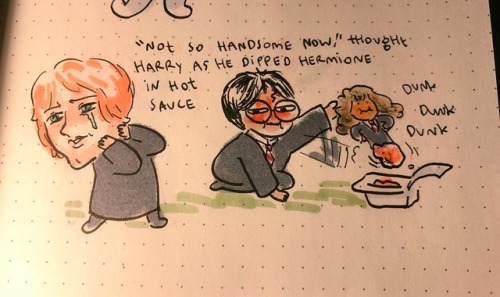 "NOT SO HANDSOME NOW," thought
HARRY AS HE DIPPED HERMIONE
IN HOT
SAUCE
DUNK
DUNK
DUNK